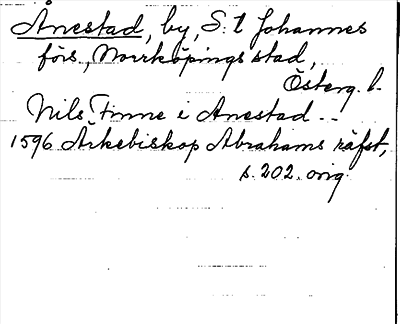 Ånestad, by, S:t Johannes
förs., Norrköpings stad,
Österg. l.
Nils Finne i Anestad --
1596 Ärkebiskop Abrahams räfst,
s. 202. orig.